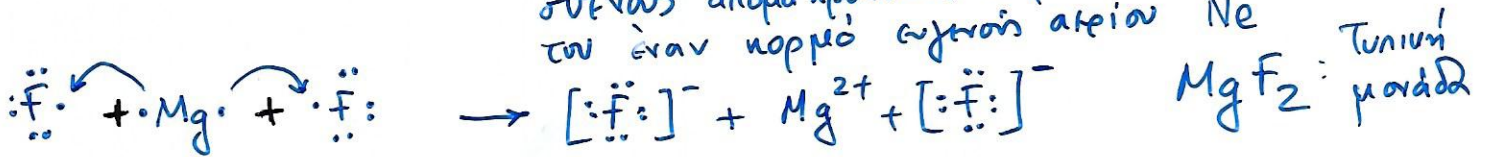 του έναν κορμό ευγενούς αερίου Ne
:F̈· + ·Mg· + ·F̈: → [:F̈:]⁻ + Mg²⁺ + [:F̈:]⁻ MgF₂: Τυπική μονάδα